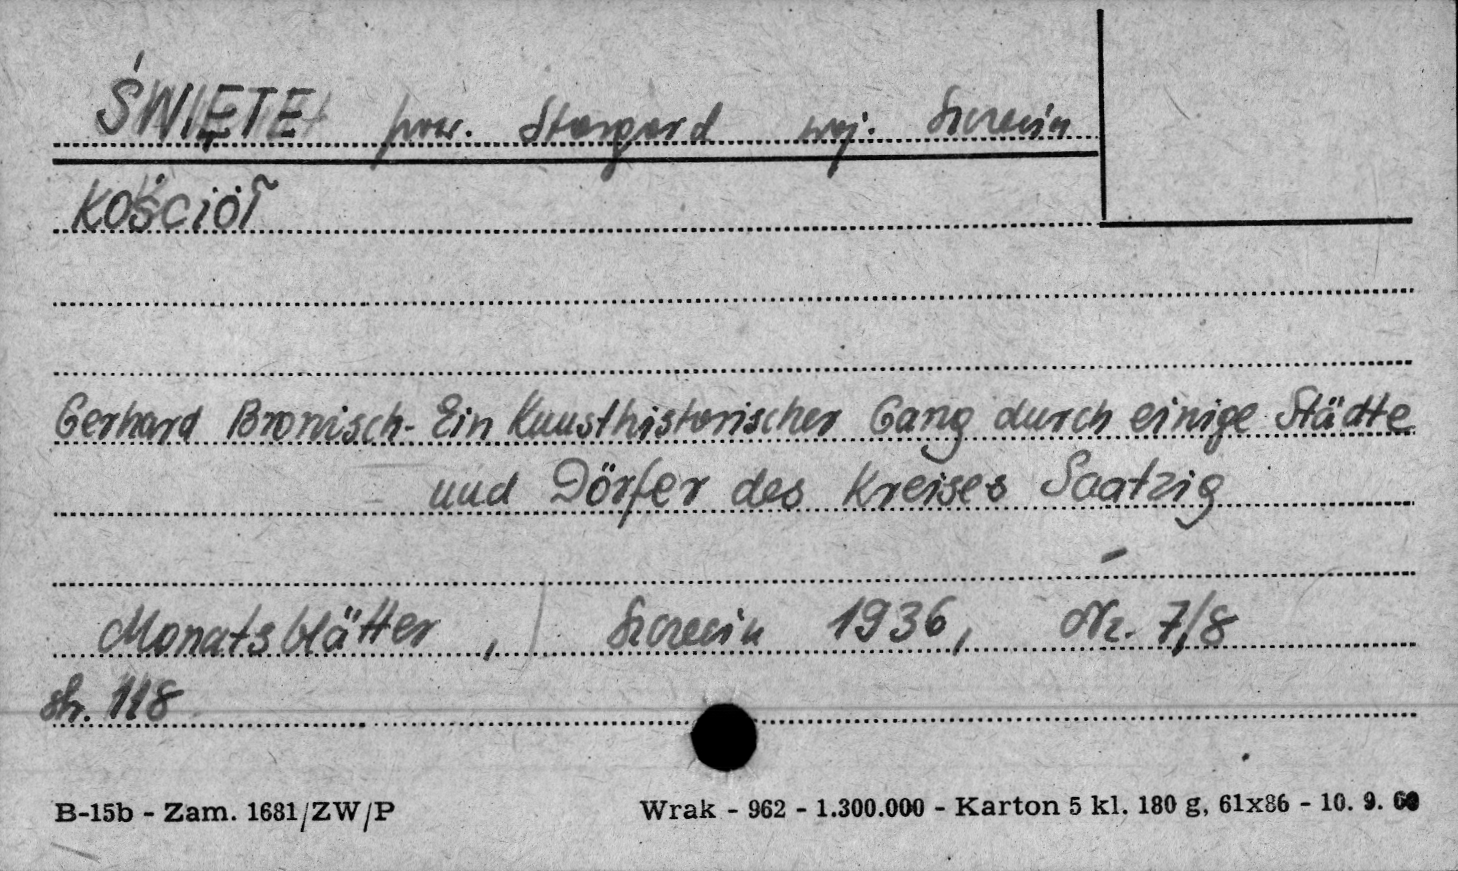 ŚWIĘTE pow. Stargard woj. Szczecin
KOŚCIÓŁ
Gerhard Bronisch - Ein Kunsthistorischer Gang durch einige Städte
und Dörfer des Kreises Saatzig
Monatsblätter, Szczecin 1936, Nr. 7/8
str. 118
B-15b - Zam. 1681/ZW/P Wrak - 962 - 1.300.000 - Karton 5 kl. 180 g, 61x86 - 10. 9. 60